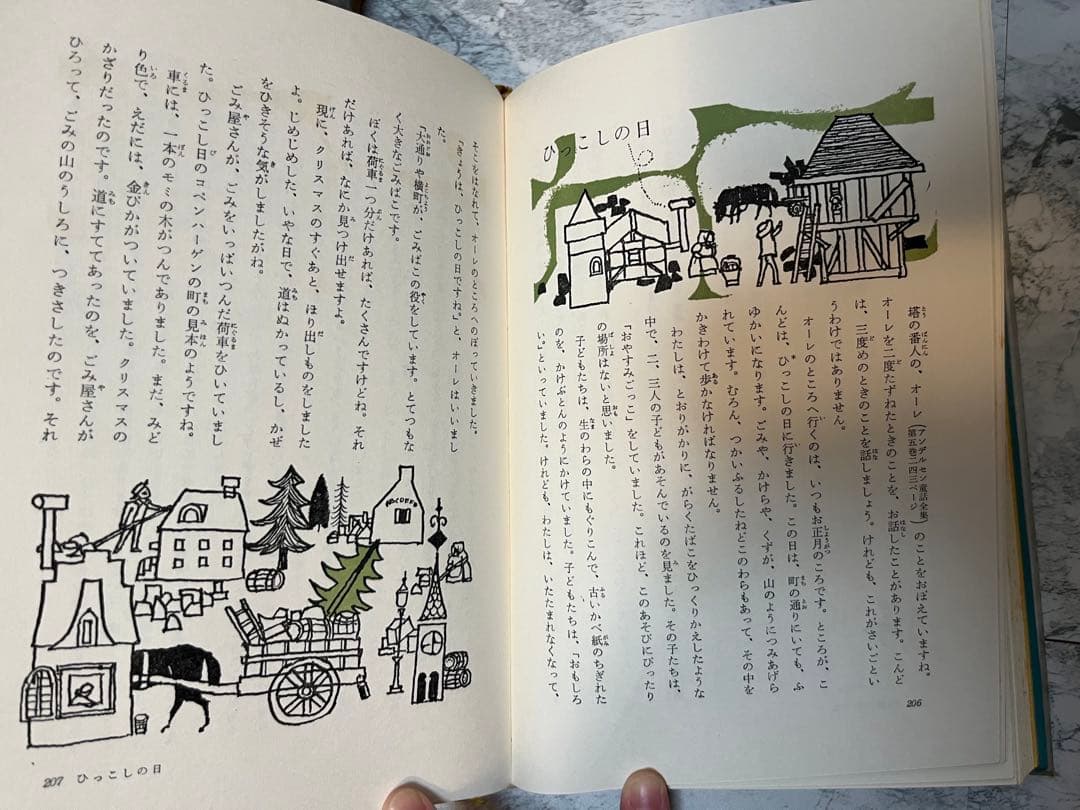 ひっこしの日
塔の番人の、オーレ(アンデルセン童話全集第五巻二四三ページ)のことをおぼえていますね。
オーレを二度たずねたときのことを、お話したことがあります。こんど
は、三度めのときのことを話しましょう。けれども、これがさいごとい
うわけではありません。
オーレのところへ行くのは、いつもお正月のころです。ところが、こ
んどは、ひっこしの日に行きました。この日は、町の通りにいても、ふ
ゆかいになります。ごみや、かけらや、くずが、山のようにつみあげら
れています。むろん、つかいふるしたねどこのわらもあって、その中を
かきわけて歩かなければなりません。
わたしは、とおりがかりに、がらくたばこをひっくりかえしたような
中で、二、三人の子どもがあそんでいるのを見ました。その子たちは、
「おやすみごっこ」をしていました。これほど、このあそびにぴったり
の場所はないと思いました。
子どもたちは、生のわらの中にもぐりこんで、古いかべ紙のちぎれた
のを、かけぶとんのようにかけていました。子どもたちは、「おもしろ
い。」といっていました。けれども、わたしは、いたたまれなくなって、
206
そこをはなれて、オーレのところへのぼっていきました。
「きょうは、ひっこしの日ですね。」と、オーレはいいまし
た。
「大通りや横町が、ごみばこの役をしています。とてつもな
く大きなごみばこです。
ぼくは荷車一つ分だけあれば、たくさんですけどね。それ
だけあれば、なにか見つけ出せますよ。
現に、クリスマスのすぐあと、ほり出しものをしました
よ。じめじめした、いやな日で、道はぬかっているし、かぜ
をひきそうな気がしましたがね。
ごみ屋さんが、ごみをいっぱいつんだ荷車をひいていまし
た。ひっこし日のコペンハーゲンの町の見本のようですね。
車には、一本のモミの木がつんでありました。まだ、みど
り色で、えだには、金ぴかがついていました。クリスマスの
かざりだったのです。道にすててあったのを、ごみ屋さんが
ひろって、ごみの山のうしろに、つきさしたのです。それ
207 ひっこしの日